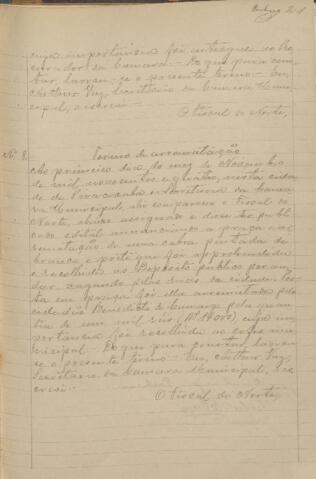 cuja importancia foi entregue ao Pro-
curador da Camara. Do que para cons-
tar, lavrou-se o presente termo. Eu,
Arthur Vaz, Secretario da Camara Muni-
cipal, escrevi.
O Fiscal do Norte,
Nº 8.
Termo de arrematação
Ao primeiro dia do mez de Novembro
de mil novecentos e quatro, nesta cida-
de de Piracicaba e Secretaria da Cama-
ra Municipal, ahi compareceu o Fiscal do
Norte, abaixo assignado e disse ter publi-
cado edital annunciando a praça e ar-
rematação de uma cabra pintada de
branco e preto que foi apprehendida
e recolhida ao Deposito publico por an-
dar vagando pelas ruas da cidade. Pos-
ta em praça foi ella arrematada pelo
cidadão Benedicto de Camargo pela quan-
tia de um mil réis (1$000) cuja im-
portancia foi recolhida ao cofre mu-
nicipal. Do que para constar, lavrou-
se o presente termo. Eu, Arthur Vaz,
Secretario da Camara Municipal, o es-
crevi.
O Fiscal do Norte,